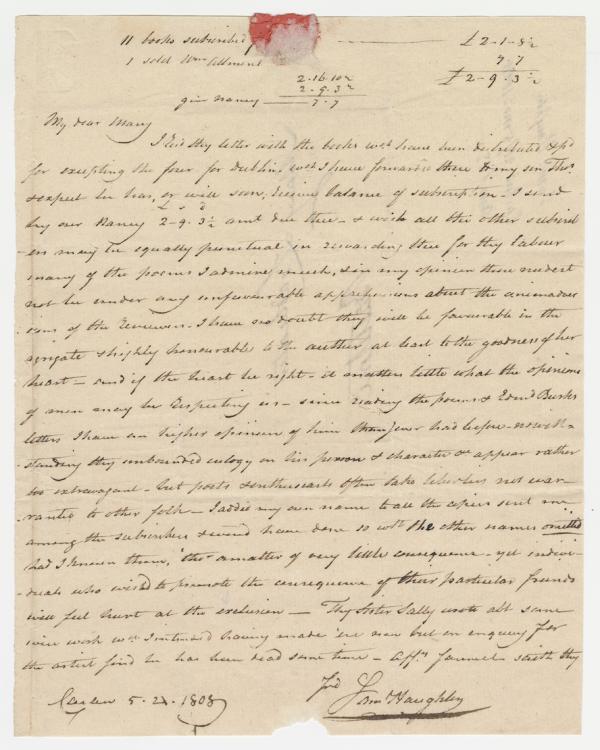 11 books subscribed for £2-1-8½
1 sold Wm Allment 7 7
£2-9-3½
2.16.10½
2-9.3½
give Nancy 7.7
My dear Mary
I recd thy letter with the books wch have been distributed & pd
for excepting the four for Dublin wch I have forwarded there to my son Thos
& expect he has, or will soon, receive balance of subscription - I send
£ s d
by our Nancy 2-9.3½ amt due thee - & wish all the other subscrib
ers may be equally punctual in rewarding thee for thy labour
many of the poems I admire much, & in my opinion thou needest
not be under any unfavourable apprehensions about the animadver
sions of the Reviewers. I have no doubt they will be favourable in the
agrigate & highly honourable to the author at least to the goodness of her
heart - and if the heart be right - it matters little what the opinions
of men may be respecting us - since reading the poems & Edmd Burks
letters I have an higher opinion of him than I ever had before - notwith-
standing thy unbounded eulogy on his person & character &c appear rather
too extravagant - but poets & enthusiasts often take liberties not war-
ranted to other folk - I added my own name to all the copies sent me
among the subscribers & would have done so with the other names omitted
had I known them, tho' a matter of very little consequence - yet indivi-
duals who wish'd to promote the consequence of their particular friends
will feel hurt at the exclusion - Thy Sister Sally wrote abt some
wire work wch I intended having made 'ere now but on enquiry for
the artist find he has been dead some time - Afft farewell saith thy
frd
Saml Haughton
Carlow 5.21.1808